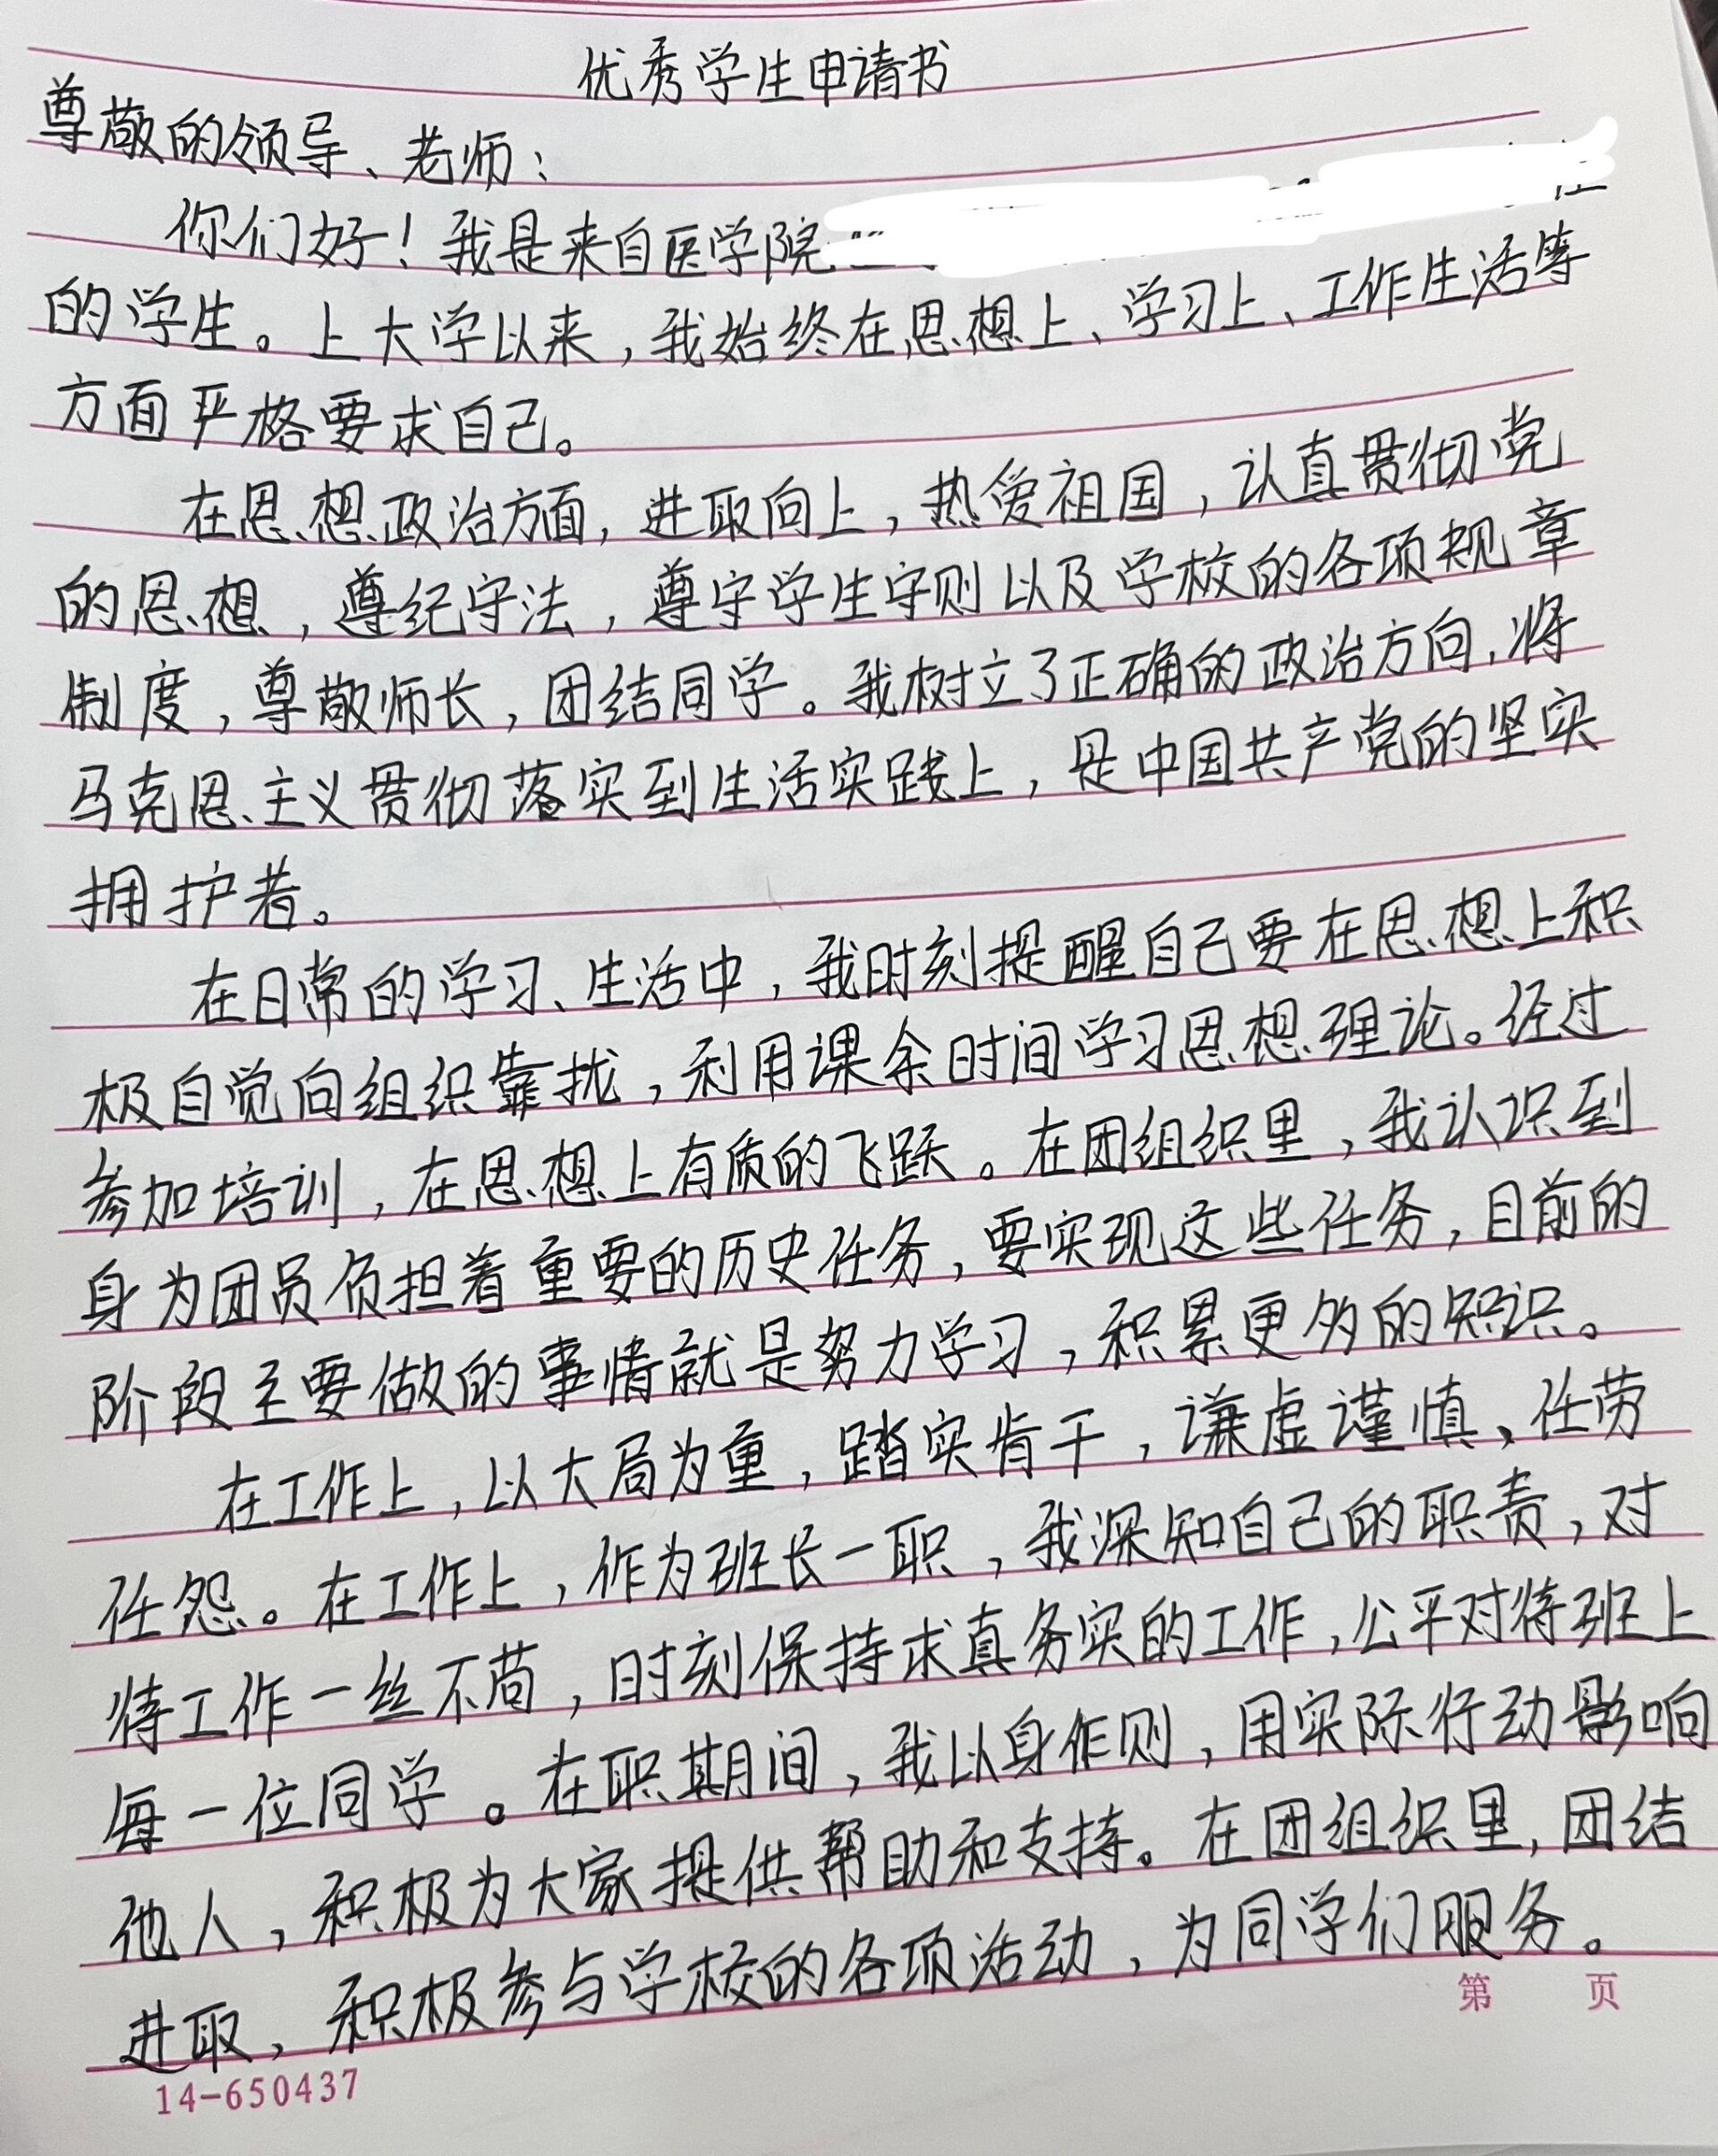 优秀学生申请书
尊敬的领导、老师：
你们好！我是来自医学院
的学生。上大学以来，我始终在思想上、学习上、工作生活等
方面严格要求自己。
在思想政治方面，进取向上，热爱祖国，认真贯彻党
的思想，遵纪守法，遵守学生守则以及学校的各项规章
制度，尊敬师长，团结同学。我树立了正确的政治方向，将
马克思主义贯彻落实到生活实践上，是中国共产党的坚实
拥护者。
在日常的学习、生活中，我时刻提醒自己要在思想上积
极自觉向组织靠拢，利用课余时间学习思想理论。经过
参加培训，在思想上有质的飞跃。在团组织里，我认识到
身为团员负担着重要的历史任务，要实现这些任务，目前的
阶段主要做的事情就是努力学习，积累更多的知识。
在工作上，以大局为重，踏实肯干，谦虚谨慎、任劳
任怨。在工作上，作为班长一职，我深知自己的职责，对
待工作一丝不苟，时刻保持求真务实的工作，公平对待班上
每一位同学。在职期间，我以身作则，用实际行动影响
他人，积极为大家提供帮助和支持。在团组织里，团结
进取，积极参与学校的各项活动，为同学们服务。
第 页
14-650437